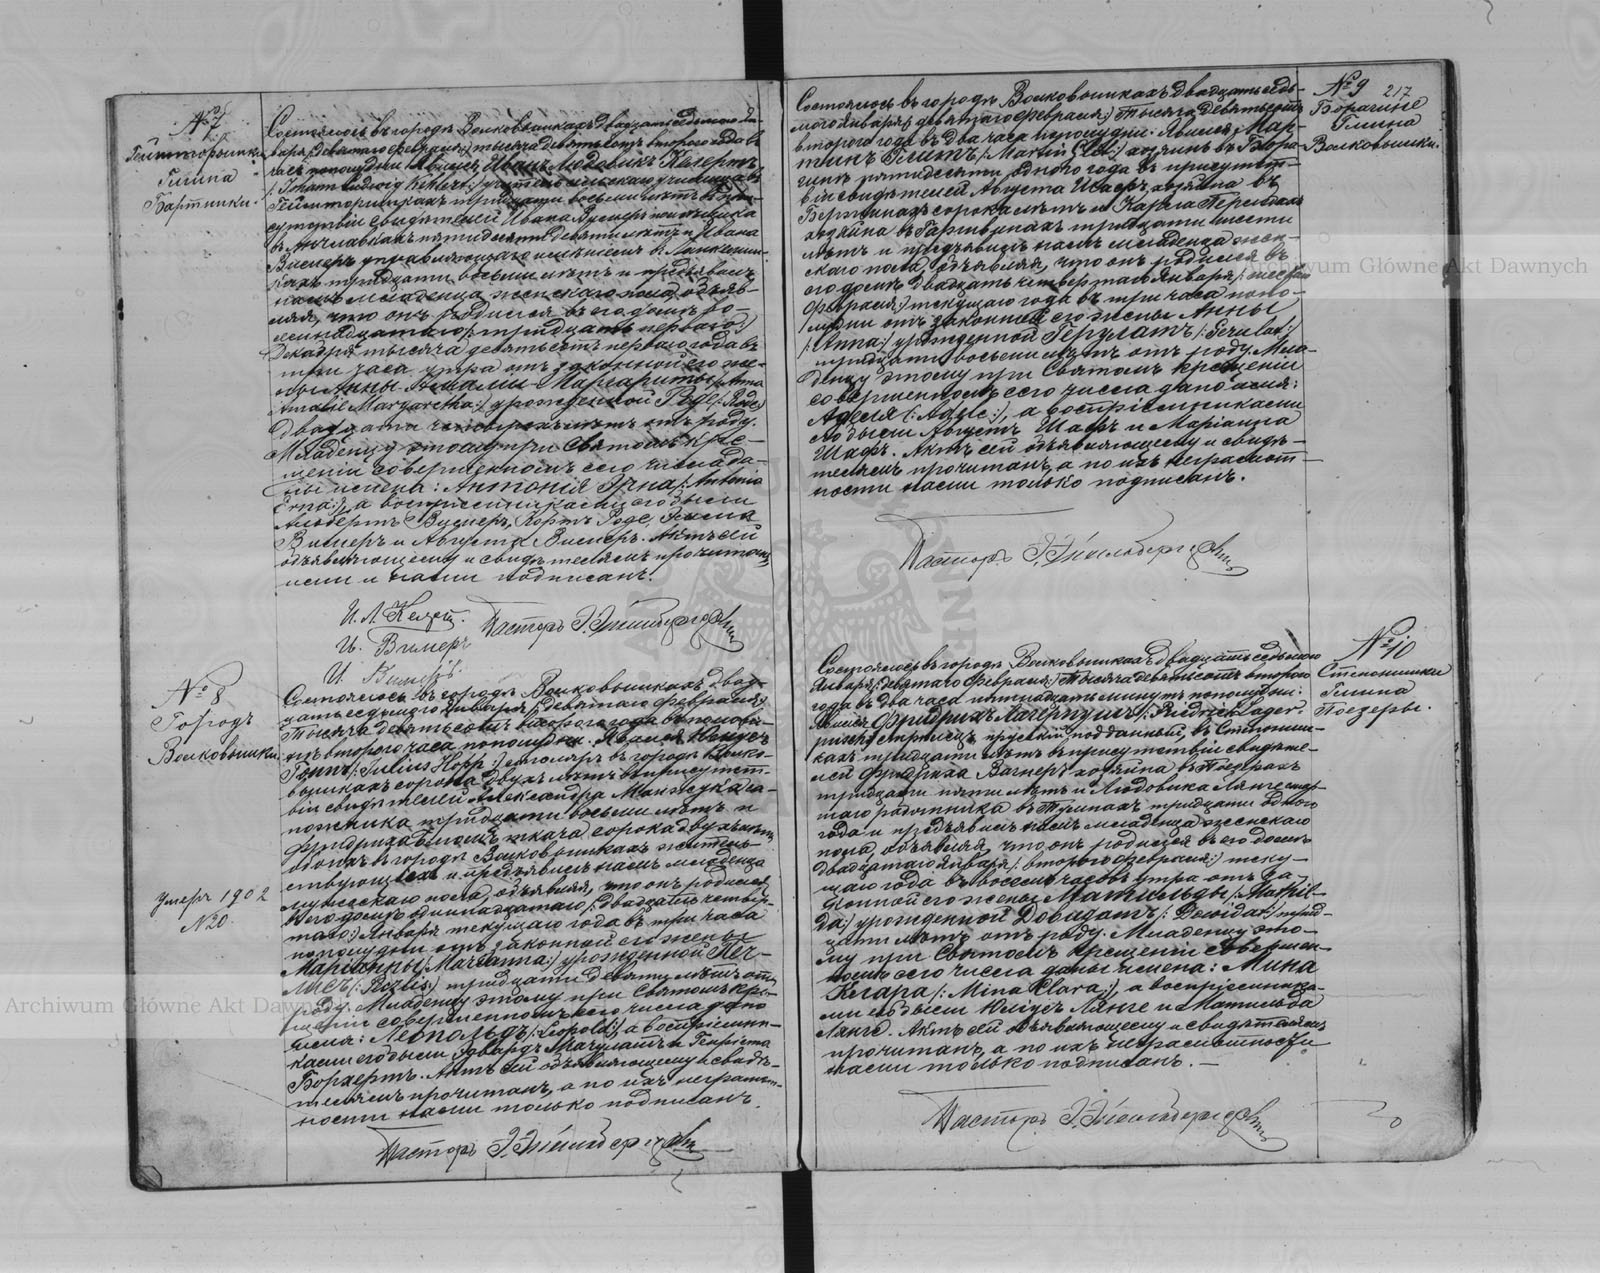 № 7
Гейшторышки
Гмина
Бартники.
Состоялось въ городѣ Волковышкахъ двадцать седьмого Ян-
варя /: девятаго Февраля :/ тысяча девятьсотъ второго года въ
часъ пополудни. Явился Иванъ Людвикъ Келертъ
/: Johann Ludwig Kehlert :/ учитель сельскаго училища въ
Гейшторышкахъ тридцати восьми лѣтъ въ при-
сутствіи свидѣтелей Ивана Вимеръ
пятидесяти девяти лѣтъ и Ивана
Вимеръ управляющаго имѣніемъ въ
тридцати восьми лѣтъ и предъявилъ
намъ младенца женскаго пола, объяв-
ляя, что онъ родился въ его домѣ во-
семнадцатаго /: тридцать перваго :/
Декабря тысяча девятьсотъ перваго года въ
три часа утра отъ законной его же-
ны Анны Амаліи Маргариты /: Anna
Amalie Margaretha :/ урожденной Роде /: Rode :/
двадцати четырехъ лѣтъ отъ роду.
Младенцу этому при Святомъ Кре-
щеніи совершенномъ сего числа да-
ны имена: Антонія Эрна /: Antonia
Erna :/, а воспріемниками его были
Альбертъ Вимеръ, Кортъ Роде, Эмма
Вимеръ и Августа Вимеръ. Актъ сей
объявляющему и свидѣтелямъ прочитанъ,
ими и нами подписанъ.
И. Л. Келертъ. Пасторъ
И. Вимеръ
И. Вимеръ.
№ 8
Городъ
Волковышки.
Умеръ 1902
№ 20.
Состоялось въ городѣ Волковышкахъ двад-
цать седьмого Января /: девятаго Февраля :/
тысяча девятьсотъ второго года въ полови-
нѣ второго часа пополудни. Явился Юлиусъ
Гоппъ /: Julius Hopp :/ столяръ въ городѣ Волко-
вышкахъ сорока двухъ лѣтъ въ присутст-
віи свидѣтелей Александра Манжука са-
пожника тридцати восьми лѣтъ и
Фридриха ткача сорока двухъ лѣтъ,
обоихъ въ городѣ Волковышкахъ житель-
ствующихъ и предъявилъ намъ младенца
мужескаго пола, объявляя, что онъ родился
въ его домѣ одиннадцатаго /: двадцать четвер-
таго :/ Января текущаго года въ три часа
пополудни отъ законной его жены
Маріанны /: Marianna :/ урожденной
тридцати девяти лѣтъ отъ
роду. Младенцу этому при Святомъ Кре-
щеніи совершенномъ сего числа дано
имя: Леопольдъ /: Leopold :/, а воспріемни-
ками его были Эдвардъ и Генріета
Борхертъ. Актъ сей объявляющему и свидѣ-
телямъ прочитанъ, а по ихъ неграмот-
ности нами только подписанъ.
Пасторъ
№ 9 217
Гмина
Волковышки.
Состоялось въ городѣ Волковышкахъ двадцать седь-
мого Января /: девятаго Февраля :/ тысяча девятьсотъ
второго года въ два часа пополудни. Явился Мар-
тинъ /: Martin :/ хозяинъ въ Бора-
чинѣ пятидесяти одного года въ присутст-
віи свидѣтелей Августа Шафъ, хозяина въ
сорока лѣтъ и Карла
хозяина въ тридцати шести
лѣтъ и предъявилъ намъ младенца жен-
скаго пола, объявляя, что онъ родился въ
его домѣ двадцать четвертаго Января /: шестаго
Февраля :/ текущаго года въ три часа попо-
лудни отъ законной его жены Анны
/: Anna :/ урожденной Герулатъ /: Gerulat :/
тридцати восьми лѣтъ отъ роду. Мла-
денцу этому при Святомъ Крещеніи
совершенномъ сего числа дано имя:
Аделя /: Adele :/, а воспріемниками
его были Августъ Шафъ и Маріанна
Шафъ. Актъ сей объявляющему и свидѣ-
телямъ прочитанъ, а по ихъ неграмот-
ности нами только подписанъ.
Пасторъ
№ 10
Гмина
Поезеры.
Состоялось въ городѣ Волковышкахъ двадцать седьмого
Января /: девятаго Февраля :/ тысяча девятьсотъ второго
года въ два часа пятнадцать минутъ пополудни.
Явился Фридрихъ Лагерпушъ /: Friedrich Lager-
pusch :/ прусскій подданный, въ
тридцати лѣтъ въ присутствіи свидѣте-
лей Фридриха Вагнеръ хозяина въ
тридцати пяти лѣтъ и Людовика Лянге
работника въ тридцати одного
года и предъявилъ намъ младенца женскаго
пола, объявляя, что онъ родился въ его домѣ
двадцатаго Января /: второго Февраля :/ теку-
щаго года въ восемь часовъ утра отъ за-
конной его жены Матильды /: Mathil-
da :/ урожденной Довидатъ /: Dowidat :/ трид-
цати лѣтъ отъ роду. Младенцу это-
му при Святомъ Крещеніи совершен-
номъ сего числа даны имена: Мина
Клара /: Mina Clara :/, а воспріемника-
ми его были Юлиусъ Лянге и Матильда
Лянге. Актъ сей объявляющему и свидѣтелямъ
прочитанъ, а по ихъ неграмотности
нами только подписанъ.
Пасторъ
Archiwum Główne Akt Dawnych
Archiwum Główne Akt Dawnych